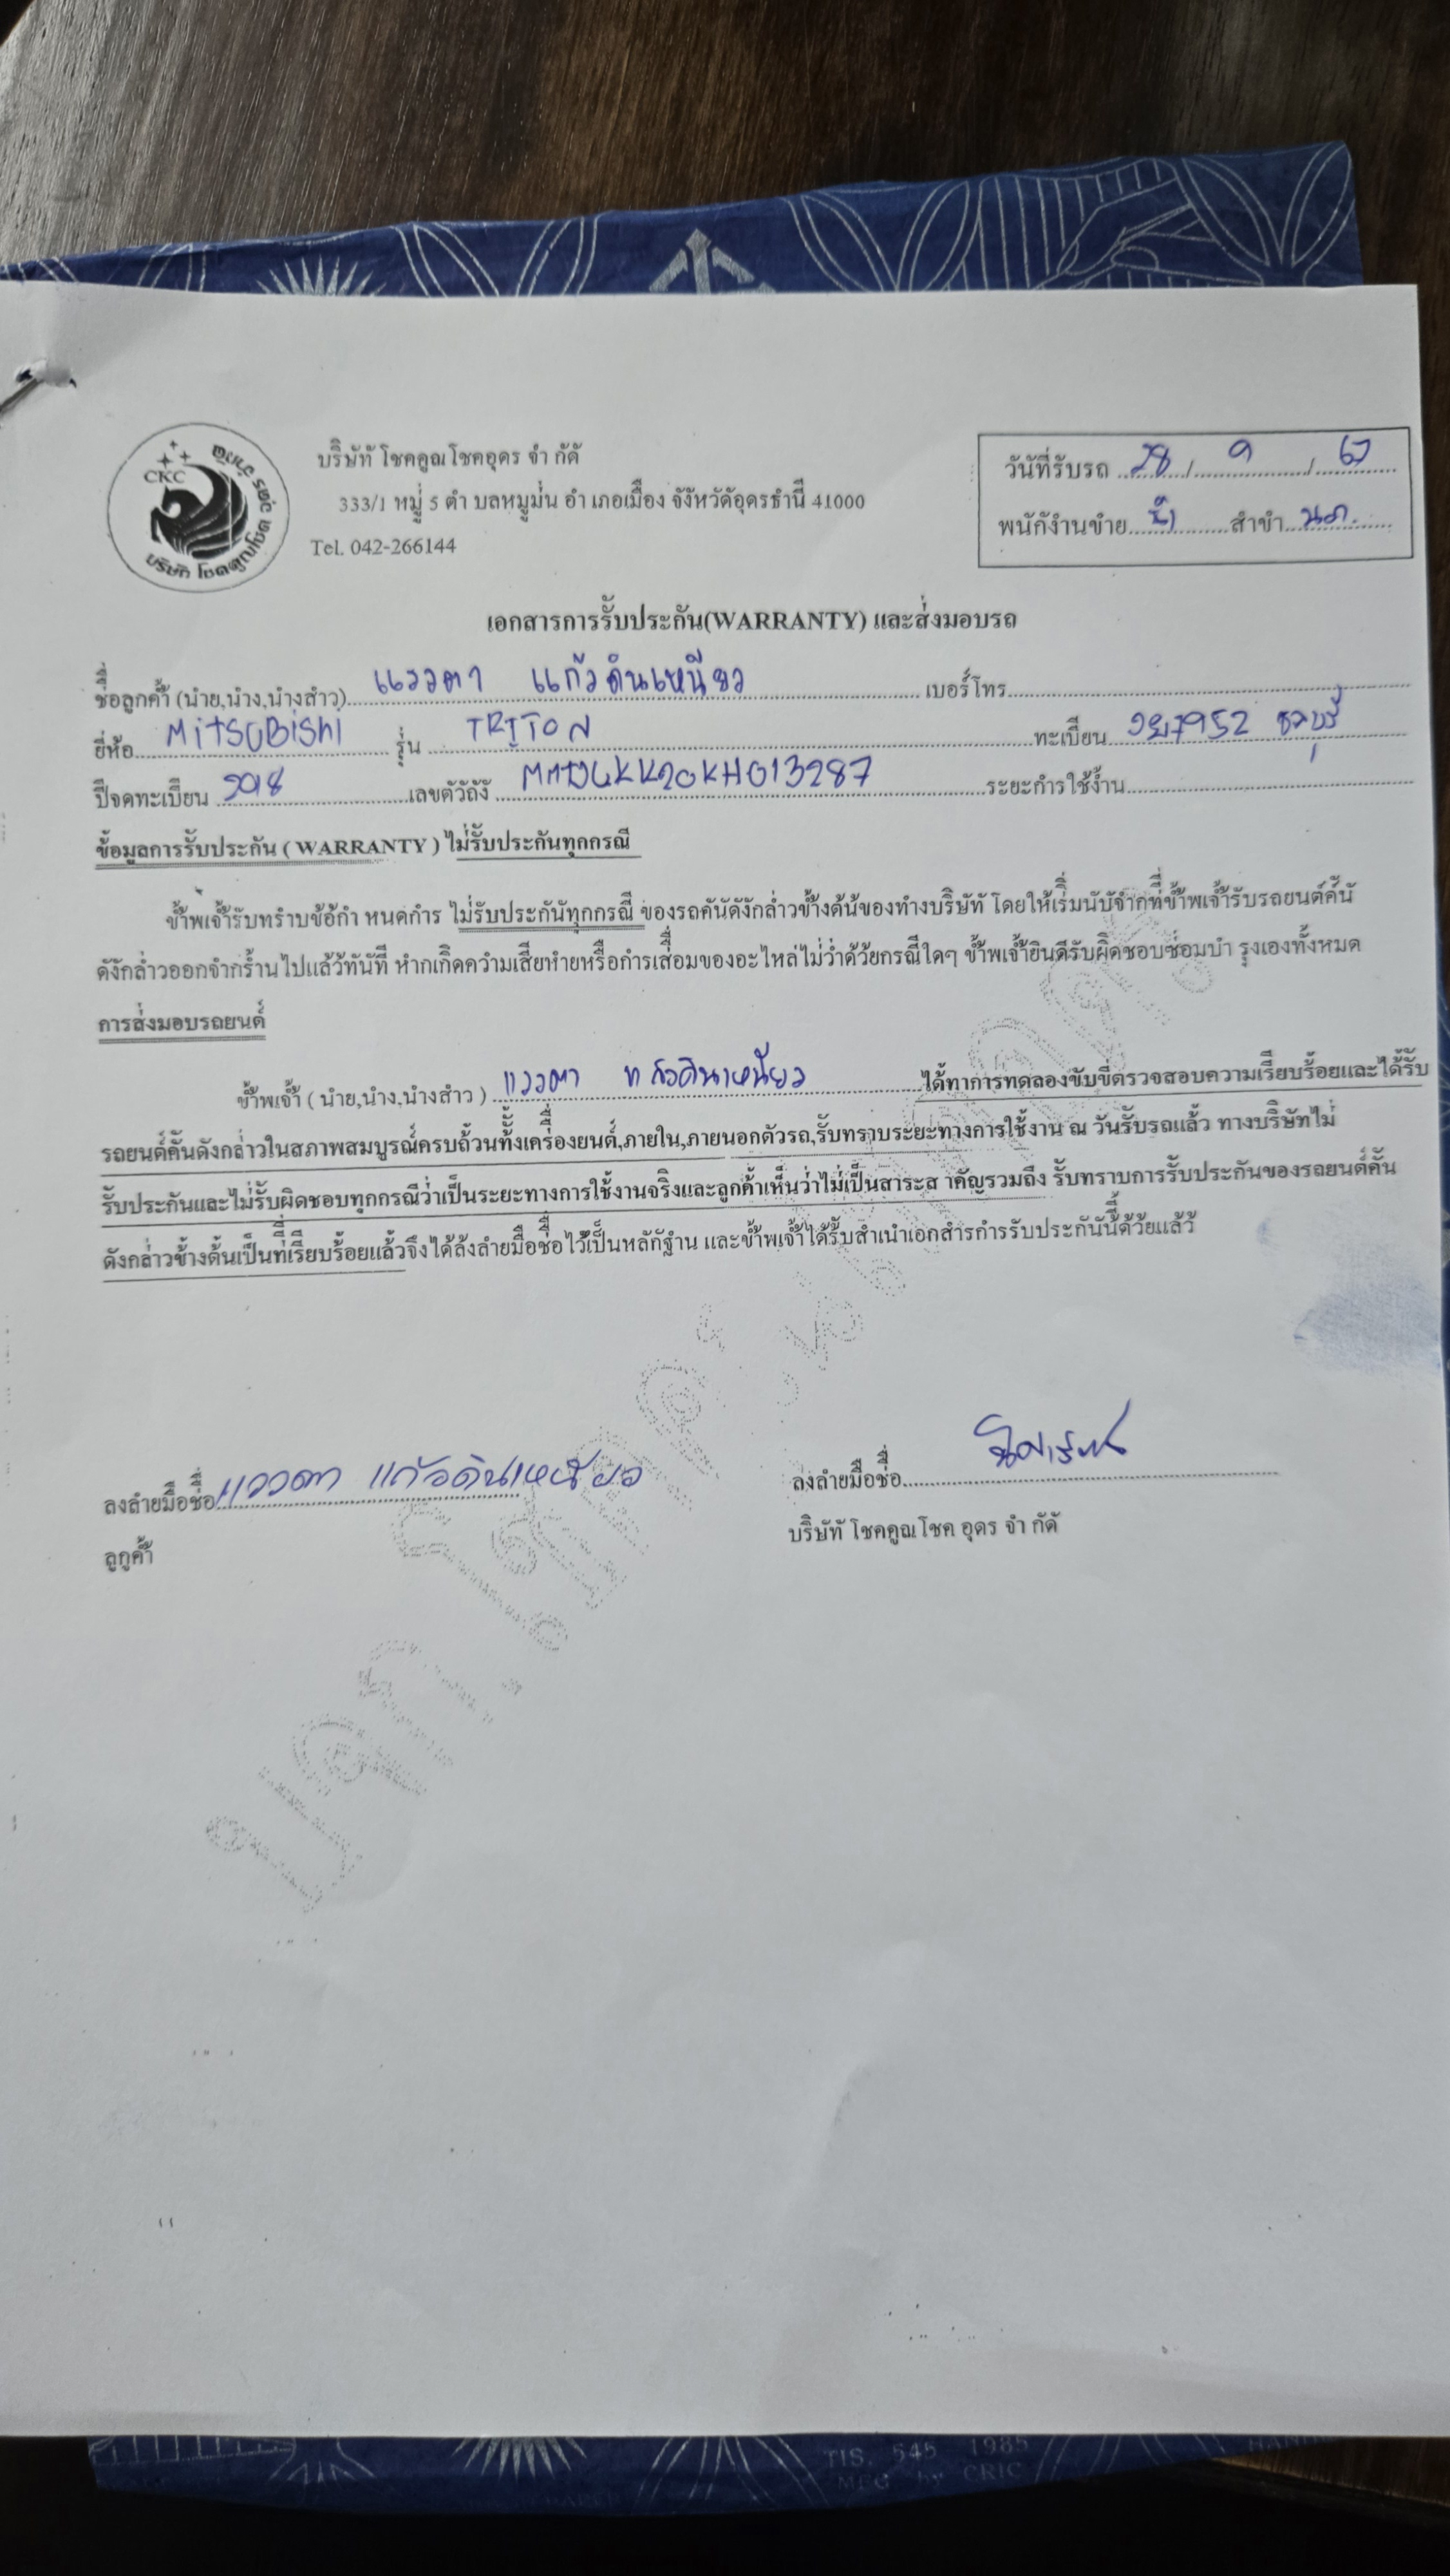 CKC
บริษัท โชคคูณโชค อุดร จำกัด
บริษัท โชคคูณโชคอุดร จำกัด
333/1 หมู่ 5 ตำบลหมูม่น อำเภอเมือง จังหวัดอุดรธานี 41000
Tel. 042-266144
วันที่รับรถ 28 / 9 / 67
พนักงานขาย สาขา
เอกสารการรับประกัน(WARRANTY) และส่งมอบรถ
ชื่อลูกค้า (นาย,นาง,นางสาว) แววตา แก้วดินเหนียว เบอร์โทร
ยี่ห้อ MiTSUBiSHi รุ่น TRITON ทะเบียน 7952 ชลบุรี
ปีจดทะเบียน 2018 เลขตัวถัง ระยะการใช้งาน
ข้อมูลการรับประกัน ( WARRANTY ) ไม่รับประกันทุกกรณี
ข้าพเจ้ารับทราบข้อกำหนดการ ไม่รับประกันทุกกรณี ของรถคันดังกล่าวข้างต้นของทางบริษัท โดยให้เริ่มนับจากที่ข้าพเจ้ารับรถยนต์คัน
ดังกล่าวออกจากร้านไปแล้วทันที หากเกิดความเสียหายหรือการเสื่อมของอะไหล่ไม่ว่าด้วยกรณีใดๆ ข้าพเจ้ายินดีรับผิดชอบซ่อมบำรุงเองทั้งหมด
การส่งมอบรถยนต์
ข้าพเจ้า ( นาย,นาง,นางสาว ) แววตา แก้วดินเหนียว ได้ทาการทดลองขับขี่ตรวจสอบความเรียบร้อยและได้รับ
รถยนต์คันดังกล่าวในสภาพสมบูรณ์ครบถ้วนทั้งเครื่องยนต์,ภายใน,ภายนอกตัวรถ,รับทราบระยะทางการใช้งาน ณ วันรับรถแล้ว ทางบริษัทไม่
รับประกันและไม่รับผิดชอบทุกกรณีว่าเป็นระยะทางการใช้งานจริงและลูกค้าเห็นว่าไม่เป็นสาระสาคัญรวมถึง รับทราบการรับประกันของรถยนต์คัน
ดังกล่าวข้างต้นเป็นที่เรียบร้อยแล้วจึงได้ลงลายมือชื่อไว้เป็นหลักฐาน และข้าพเจ้าได้รับสำเนาเอกสารการรับประกันนี้ด้วยแล้ว
ลงลายมือชื่อ แววตา แก้วดินเหนียว
ลงลายมือชื่อ
ลูกค้า
บริษัท โชคคูณโชค อุดร จำกัด
TIS. 545 1985
MFG by CRIC